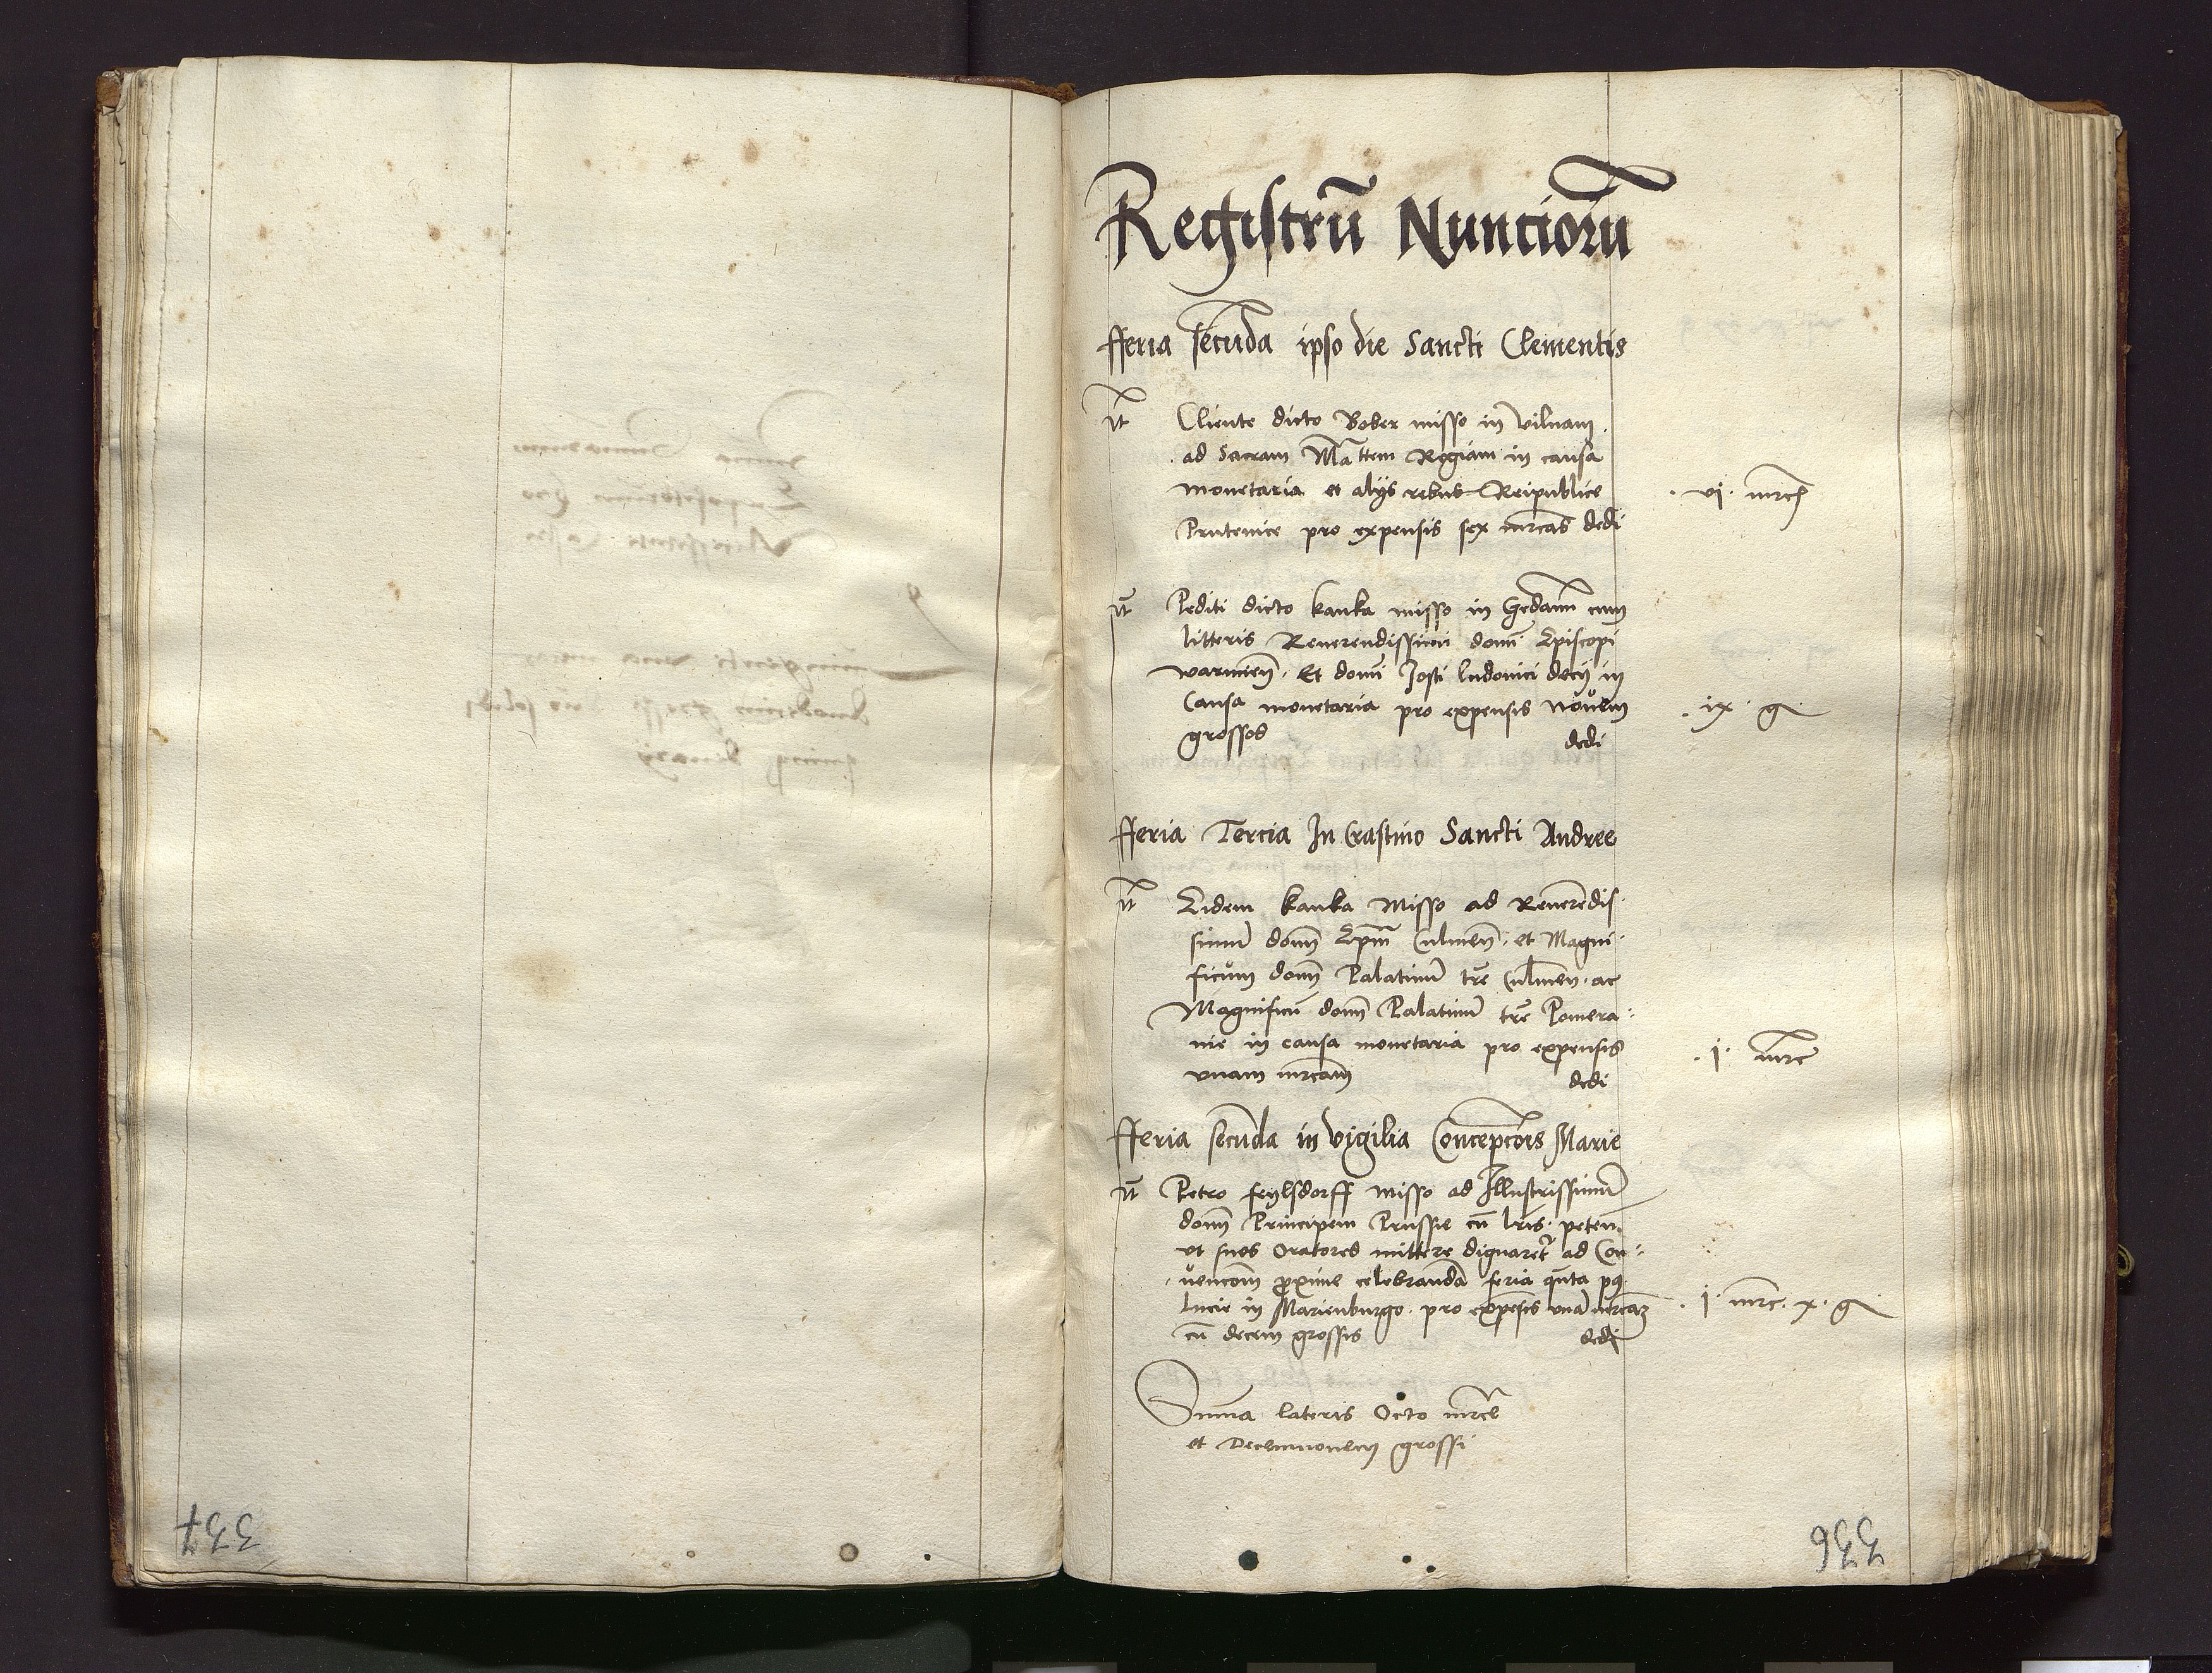 Registrũ Nuncioru
fferia secũda ipso die Sancti Clementis
It Cliente dicto Bober misso in Vilnam
ad Sacram Mattem Regiam in causa
monetaria et alijs rebus Reipublice
Prutenice pro expensis sex mrcas dedi
vj mrc
It Pediti dicto kanka misso in Gedanũ cum
litteris Reuerendissimi domi Episcopi
warmien̄. Et domi Josti ludouici decij in
Causa monetaria pro expensis nouem
grossos dedi
ix g
fferia Tercia In Crastino Sancti Andree
It Eidem kanka Misso ad Reuerẽdis
simũ dom̄ Ep̄m Culmen̄. et Magni
ficum dom̄ Palatinũ tr̄e Culmen̄. ac
Magnificũ dom̄ Palatinũ tr̄e Pomera
nie in causa monetaria pro expensis
vnam mrcam dedi
j mrc
fferia secũda in vigilia Concepcõis Marie
It Petro feylsdorff misso ad Illustrissimũ
dom̄ Principem Prussie cũ lr̄is peten.
vt suos Oratores mittere dignaret̃ ad Con
uencom̄ proxime celebrandã feria qũta pq
lucie in Marienburgo. pro expẽsis vnã mrcam
cũ decem grossis dedi
j mrc. x. g
Sum̃a lateris Octo mrce
et Decemnouem grossi
334
336